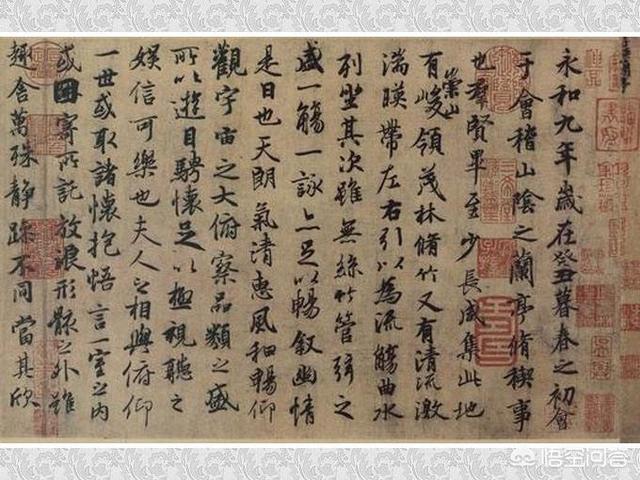 永和九年歲在癸丑暮春之初會
于會稽山陰之蘭亭脩稧事
也羣賢畢至少長咸集此地
有崇山峻領茂林脩竹又有清流激
湍暎帶左右引以為流觴曲水
列坐其次雖無絲竹管弦之
盛一觴一詠亦足以暢敘幽情
是日也天朗氣清惠風和暢仰
觀宇宙之大俯察品類之盛
所以遊目騁懷足以極視聽之
娛信可樂也夫人之相與俯仰
一世或取諸懷抱悟言一室之內
或因寄所託放浪形骸之外雖
趣舍萬殊靜躁不同當其欣
悟空问答